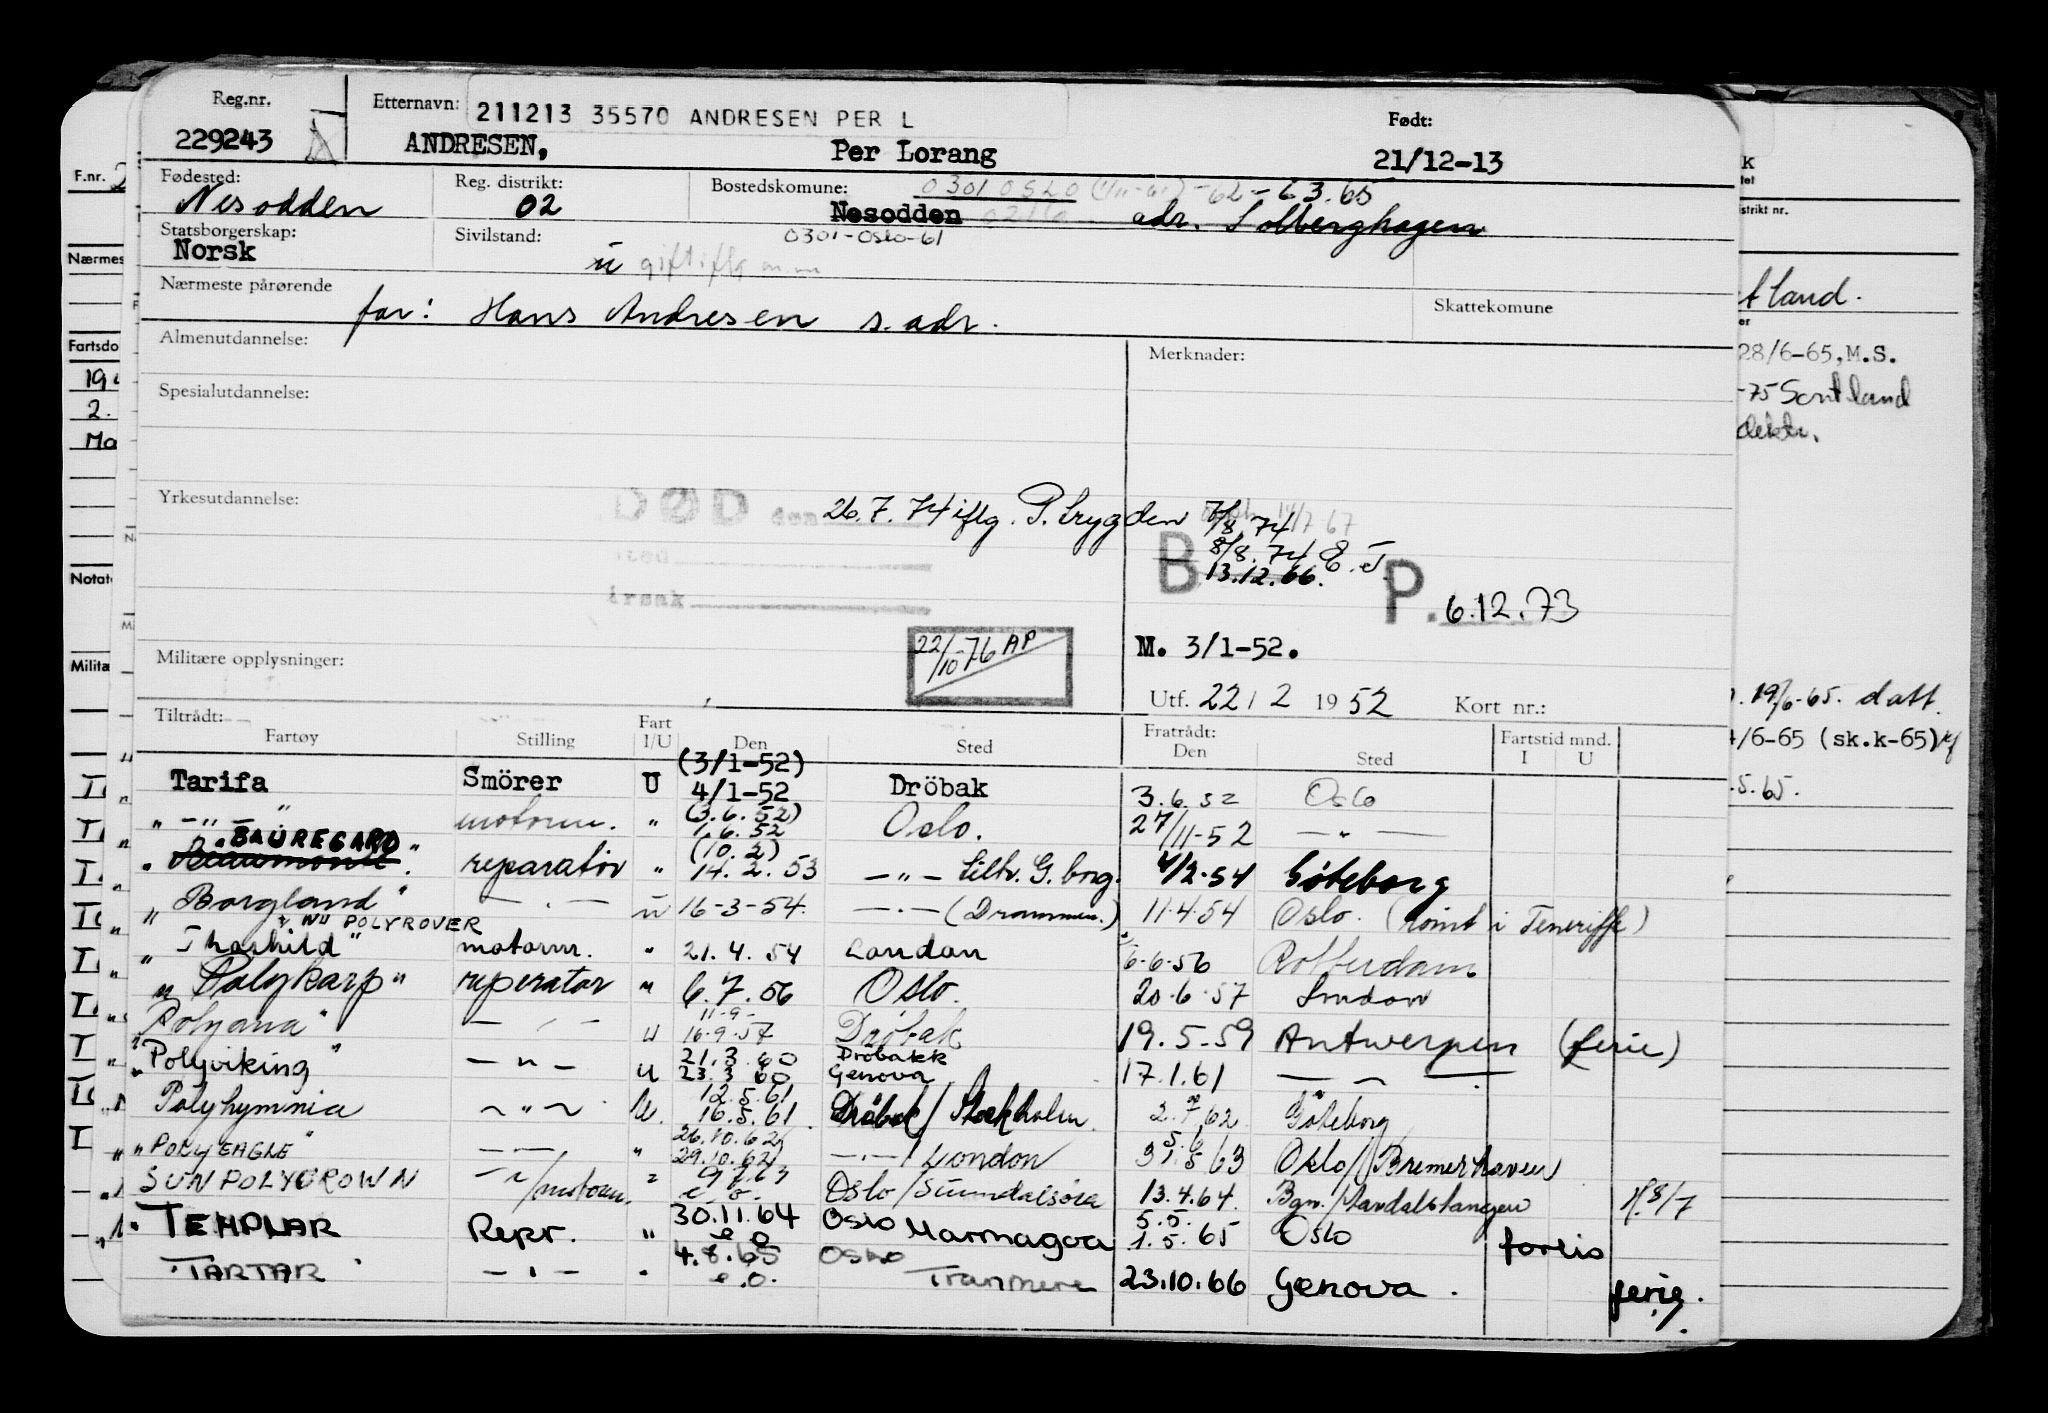 Reg.nr. Etternavn: 211213 35570 ANDRESEN PER L Født:
229243 ANDRESEN, Per Lorang 21/12-13
Fødested: Reg. distrikt: Bostedskomune: 0301 0520 -62-63.65
Nesodden 02 Nesodden adr. Solberghagen
Statsborgerskap: Sivilstand: 0301-Oslo-61
Norsk u gift iflg
Nærmeste pårørende Skattekomune
far: Hans Andresen s. adr.
Almenutdannelse: Merknader:
Spesialutdannelse:
Yrkesutdannelse: DØD den 26.7.74 iflg. P. trygden 7/8.74 14/7 67
sted 8/8.74 E.J.
årsak B 13.12.66. P. 6.12.73
22/10-76 AP M. 3/1-52.
Militære opplysninger:
Utf. 22/2 1952 Kort nr.:
Tiltrådt: Fart Fratrådt: Fartstid mnd.
Fartøy Stilling I/U Den Sted Den Sted I U
(3/1-52)
Tarifa Smörer U 4/1-52 Dröbak 3.6.52 Oslo
" -"- " motorm. " (3.6.52) 1.6.52 Oslo. 27/11-52 -"-
" BAUREGARD " reparatör " (10.2) 14.2.53 -"- tiltr. G.borg. 4/2.54 Göteborg
" Borgland " -"- u 16-3-54. -"- (Drammen.) 11.4.54 Oslo. (rømt i Teneriffe)
NU POLYROVER
" Thorshild " motorm. " 21.4.54 London 6.6.56 Rotterdam
" Polykarp " reperatör " 6.7.56 Oslo. 20.6.57 London
" Polyana " -"- u 11-9- 16.9.57 Dröbak 19.5.59 Antwerpen (ferie)
" Polyviking " -"- u 21.3.60 23.3 60 Dröbakk Genova 17.1.61 -"-
Polyhymnia -"- u. 12.5.61 16.5.61 Dröbak/Stockholm. 2.7.62 Göteborg
" POLYEAGLE " -"- " 26.10.62 29.10.62 -"-/London 5.6 31.5 63 Oslo/(Bremerhaven)
SUNPOLYCROWN -"-/motorm. " e.o. Oslo/Sunndalsöra 13.4.64. Bgn./Sandalstangen
" TEMPLAR Repr. " 30.11.64 e o Oslo Marmagoa 5.5. 1.5.65 Oslo forlis
TARTAR -"- " 4.8.65 e.o. Oslo Tranmere 23.10.66 Genova. ferie.
F.nr. 2
Nærmes
Fartsdo
19
2.
Ma
Notat
Milita
K
tet
istrikt nr.
tland.
er
28/6-65, M.S.
-75 Scotland
19/6-65. datt.
/6-65 (sk.k-65)
.5.65.